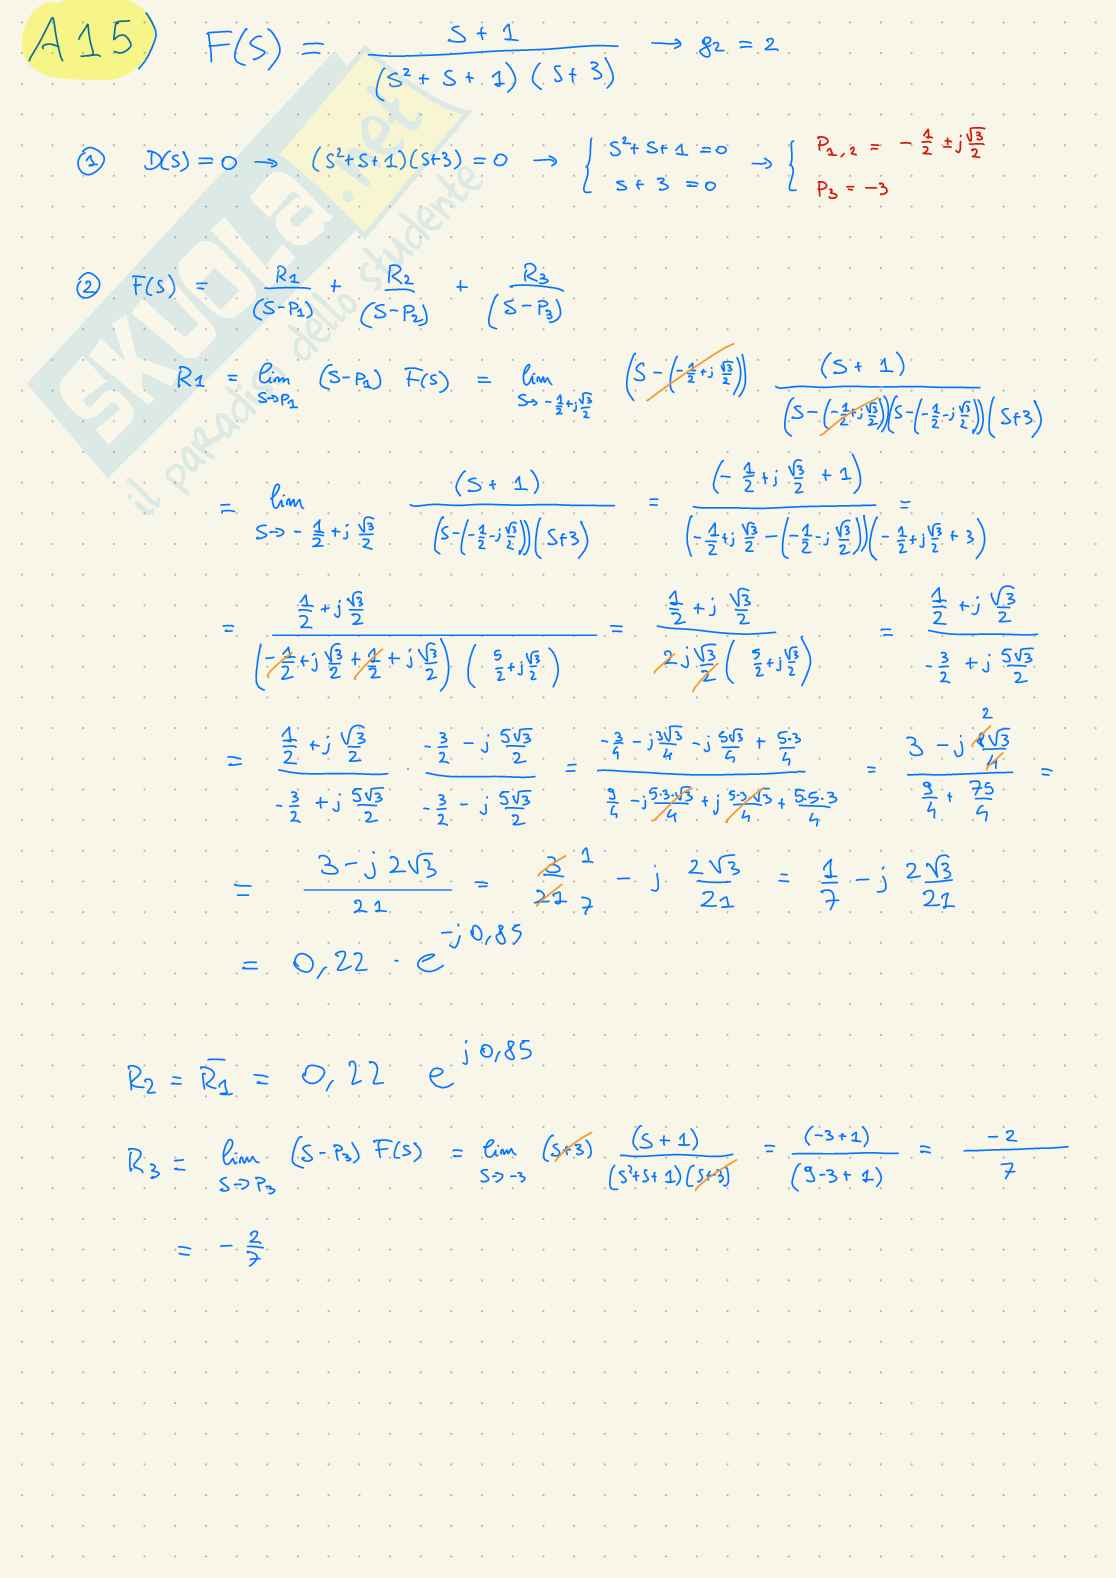 A15) F(S) = (S + 1) / ((S² + S + 1) (S + 3)) → g₂ = 2
① D(S) = 0 → (S²+S+1)(S+3) = 0 → { S²+S+1 = 0 ; S + 3 = 0 → { P₁,₂ = -1/2 ± j√3/2 ; P₃ = -3
② F(S) = R1/(S-P₁) + R2/(S-P₂) + R3/(S-P₃)
R1 = lim S→P₁ (S-P₁) F(S) = lim S→-1/2+j√3/2 (S-(-1/2+j√3/2)) (S + 1)/((S-(-1/2+j√3/2))(S-(-1/2-j√3/2))(S+3))
= lim S→-1/2+j√3/2 (S + 1)/((S-(-1/2-j√3/2))(S+3)) = (-1/2+j√3/2 + 1)/((-1/2+j√3/2-(-1/2-j√3/2))(-1/2+j√3/2+3)) =
= (1/2+j√3/2)/((-1/2+j√3/2+1/2+j√3/2)(5/2+j√3/2)) = (1/2+j√3/2)/(2j√3/2(5/2+j√3/2)) = (1/2+j√3/2)/(-3/2+j5√3/2)
= (1/2+j√3/2)/(-3/2+j5√3/2) · (-3/2-j5√3/2)/(-3/2-j5√3/2) = (-3/4-j3√3/4-j5√3/4+5·3/4)/(9/4-j5·3·√3/4+j5·3·√3/4+5·5·3/4) = (3-j8√3/4 2)/(9/4+75/4) =
= (3-j2√3)/21 = 3/21 1/7 - j 2√3/21 = 1/7 - j 2√3/21
= 0,22 · e^(-j0,85)
R2 = R̄1 = 0,22 e^(j0,85)
R3 = lim S→P₃ (S-P₃) F(S) = lim S→-3 (S+3) (S+1)/((S²+S+1)(S+3)) = (-3+1)/(9-3+1) = -2/7
= -2/7
SKUOLA.net
il paradiso dello studente